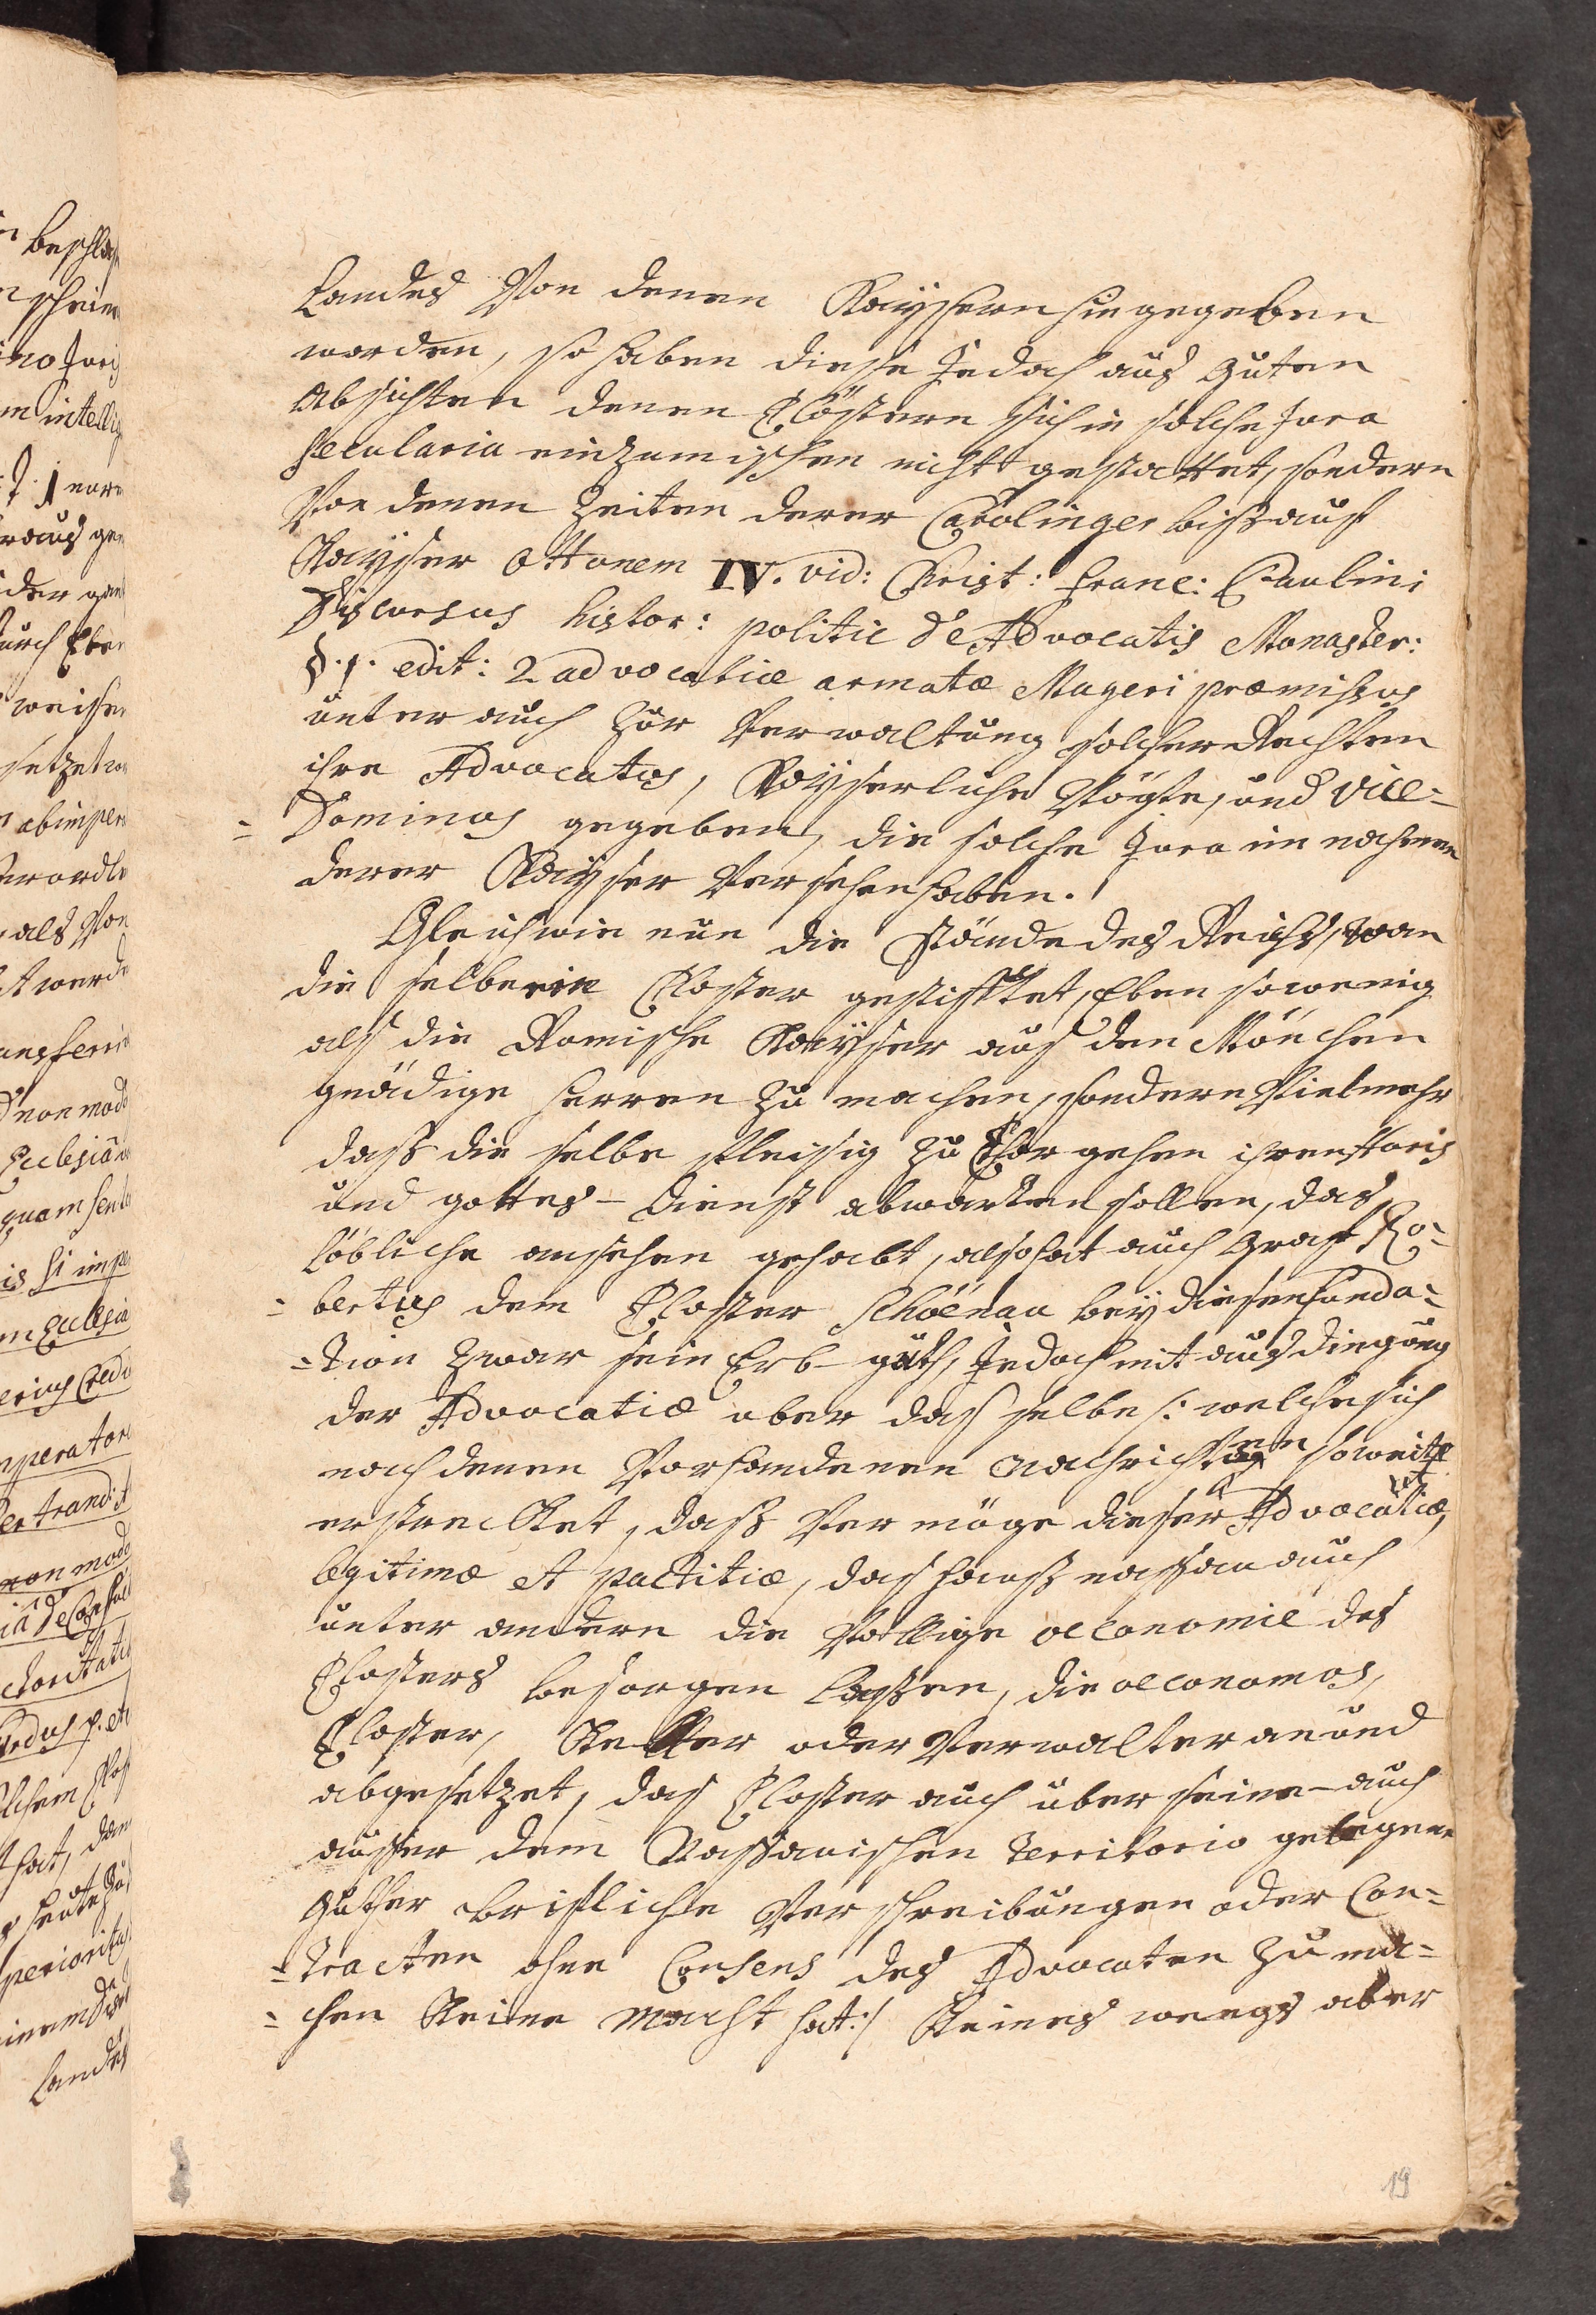 Landes Von denen Kaysern hingegeben
worden, so haben diese Jedoch aus guten
Absichten denen Clöstern sich in solche Jura
secularia einzumischen nicht gestattet, sondern
Von denen Zeiten derer Carolinger biß auf
Kayser Ottonem IV. vid: Christ: Franc: Paulini
Discursus histor: politic de Advocatis Monaster:
§. 1. edit: 2 advocatiæ armatæ Mageri præmissus
unter auch zur Verwaltung solcher Rechten
ihre Advocatus, Kayserliche Vögte, und Vice-
= Dominos gegeben, die solche Jura im nahmen
derer Kayser Versehen haben.
Gleichwie nun die Stände des Reichs, wan
die selbe ein Closter gestifftet, Eben so wenig
als die Römische Kayser aus den Mönchen
gnädige Herren zu machen, sondern Vielmehr
daß die selbe fleisig zu Chor gehen ihren Horis
und gottes- Dienst abwarten sollen, das
löbliche ansehen gehabt, also hat auch Graf Ro=
= bertus dem Closter Schöenau bey diesen funda=
= tion zwar sein Erb- guth, Jedoch mit ausdingung
der Advocatiæ über das selbe /: welche sich
nach denen Vorhandenen Nachrichten so weit
erstrecket, daß Vermöge dieser Advocatiæ,
legitimæ et pactitiæ, das hauß nassau auch
unter andern die Völlige oeconomie des
Closters besorgen laßen, die oeconomos,
Closter, Keller oder Verwalter an und
abgesetzet, das Closter auch über seine- auch
ausser dem Nassauischen Territorio gelegene
Güther brifliche Verschreibungen oder Con=
= tracten ohne Consens des Advocaten zu ma=
= chen Keine Macht hat :/ Keines weegs aber
19